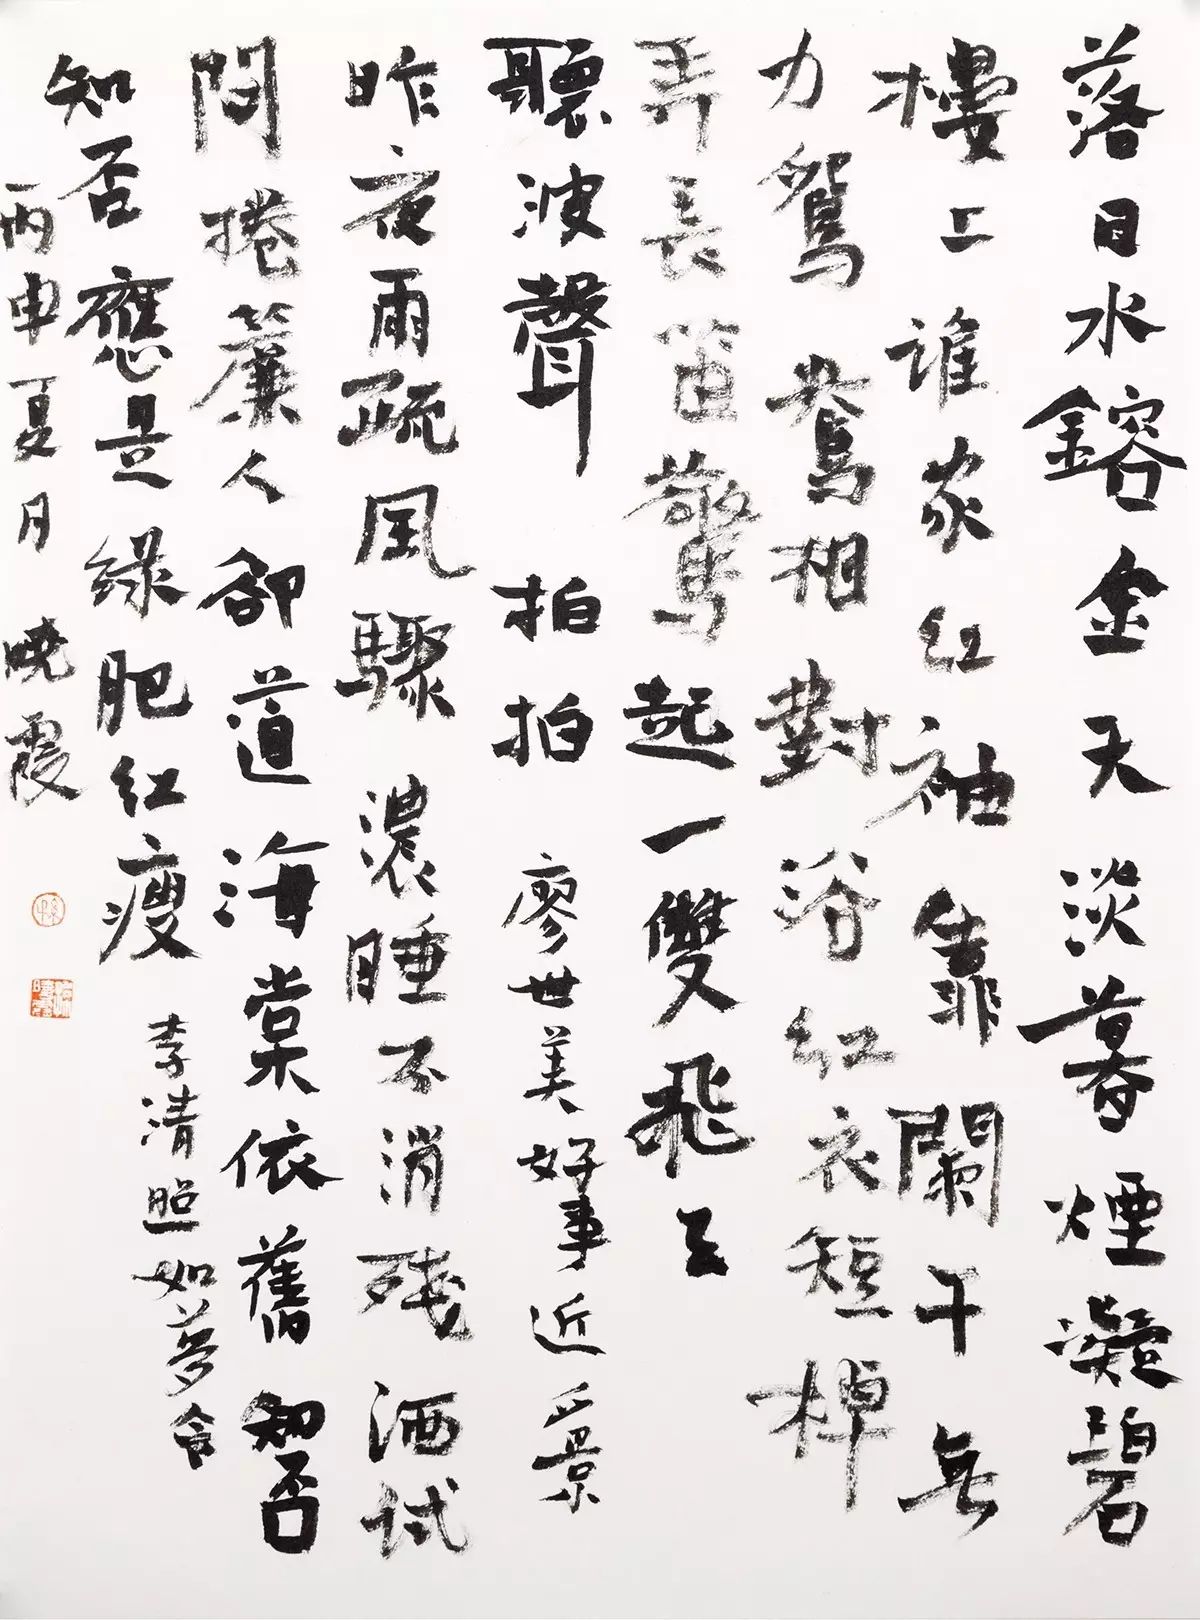 落日水鎔金天淡暮煙凝碧
樓上誰家紅袖靠闌干無
力鴛鴦相對浴紅衣短棹
弄長笛驚起一雙飛去
聽波聲拍拍 廖世美好事近夕景
昨夜雨疏風驟濃睡不消殘酒試
問捲簾人卻道海棠依舊知否
知否應是綠肥紅瘦 李清照如夢令
丙申夏月 曉霞